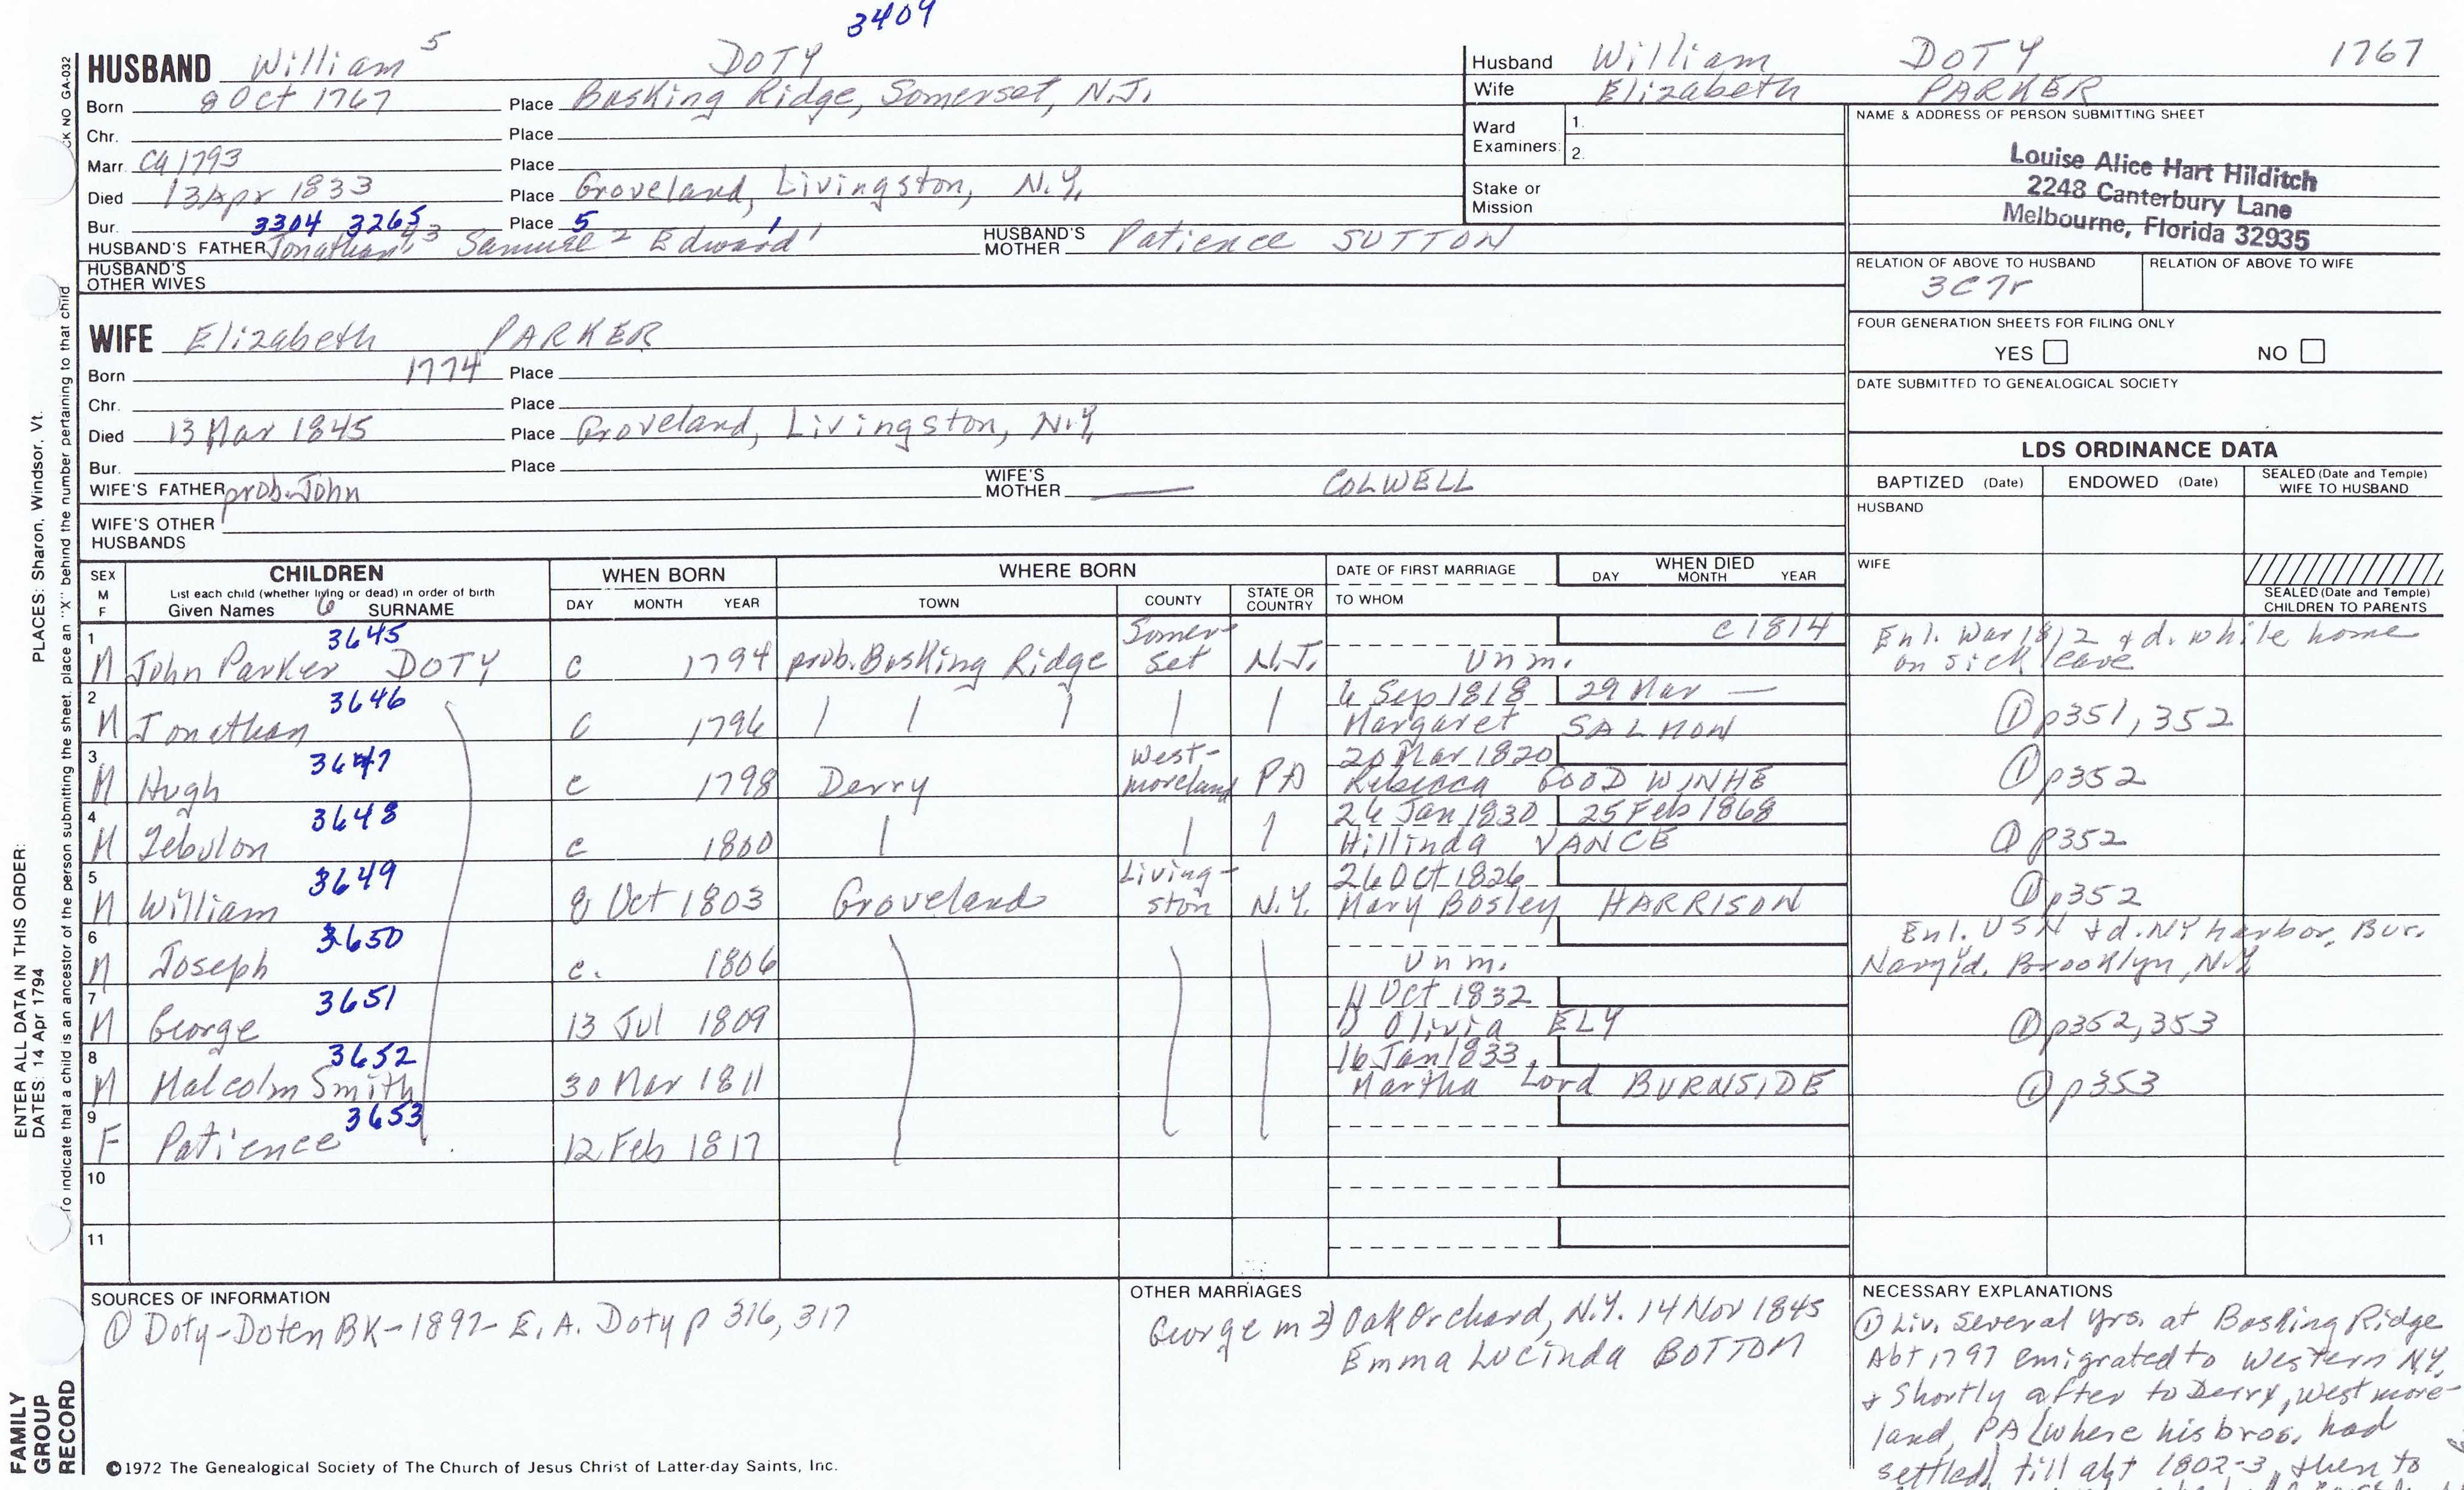 3409
HUSBAND William 5 DOTY
Born 8 Oct 1767 Place Basking Ridge, Somerset, N.J.
Chr. Place
Marr. ca 1793 Place
Died 13 Apr 1833 Place Groveland, Livingston, N.Y.
Bur. 3304 3265 Place 5 1
HUSBAND'S FATHER Jonathan Samuel 2 Edward 1 HUSBAND'S MOTHER Patience SUTTON
HUSBAND'S OTHER WIVES
Husband William DOTY 1767
Wife Elizabeth PARKER
Ward Examiners: 1.
2.
Stake or Mission
NAME & ADDRESS OF PERSON SUBMITTING SHEET
Louise Alice Hart Hilditch
2248 Canterbury Lane
Melbourne, Florida 32935
RELATION OF ABOVE TO HUSBAND RELATION OF ABOVE TO WIFE
3C7r
FOUR GENERATION SHEETS FOR FILING ONLY
YES NO
DATE SUBMITTED TO GENEALOGICAL SOCIETY
WIFE Elizabeth PARKER
Born 1774 Place
Chr. Place
Died 13 Mar 1845 Place Groveland, Livingston, N.Y.
Bur. Place
WIFE'S FATHER prob. John WIFE'S MOTHER — COLWELL
WIFE'S OTHER HUSBANDS
LDS ORDINANCE DATA
BAPTIZED (Date) ENDOWED (Date) SEALED (Date and Temple) WIFE TO HUSBAND
HUSBAND
WIFE
SEALED (Date and Temple) CHILDREN TO PARENTS
SEX M F CHILDREN List each child (whether living or dead) in order of birth Given Names 6 SURNAME
WHEN BORN DAY MONTH YEAR
WHERE BORN TOWN COUNTY STATE OR COUNTRY
DATE OF FIRST MARRIAGE TO WHOM
WHEN DIED DAY MONTH YEAR
1 3645 Somer- c 1814 Enl. War 1812 & d. while home
M John Parker DOTY c 1794 prob. Basking Ridge set N.J. Unm. on sick leave
2 3646 6 Sep 1818 29 Mar —
M Jonathan c 1796 Margaret SALMON ① p351, 352
3 3647 West- 20 Mar 1820
M Hugh c 1798 Derry moreland PA Rebecca GOOD WINHE ① p352
4 3648 26 Jan 1830 25 Feb 1868
M Zebulon c 1800 Hillinda VANCE ① p352
5 3649 Living- 26 Oct 1826
M William 8 Oct 1803 Groveland ston N.Y. Mary Bosley HARRISON ① p352
6 3650 Enl. USN & d. NY harbor, Bur.
M Joseph c. 1806 Unm. Navy Yd. Brooklyn, N.Y.
7 3651 11 Oct 1832
M George 13 Jul 1809 1) Olivia ELY ① p352, 353
8 3652 16 Jan 1833
M Malcolm Smith 30 Mar 1811 Martha Lord BURNSIDE ① p353
9 3653
F Patience 12 Feb 1817
10
11
SOURCES OF INFORMATION
① Doty-Doten BK-1897- E. A. Doty p 316, 317
OTHER MARRIAGES
George m 2) Oak Orchard, N.Y. 14 Nov 1845
Emma Lucinda BOTTOM
NECESSARY EXPLANATIONS
① Liv. several yrs. at Basking Ridge
Abt 1797 emigrated to Western N.Y.
& shortly after to Derry, Westmore-
land, PA (where his bros. had
settled) till abt 1802-3, then to
©1972 The Genealogical Society of The Church of Jesus Christ of Latter-day Saints, Inc.
FAMILY GROUP RECORD
ENTER ALL DATA IN THIS ORDER:
DATES: 14 Apr 1794
PLACES: Sharon, Windsor, Vt.
To indicate that a child is an ancestor of the person submitting the sheet, place an "X" behind the number pertaining to that child
CK NO GA-032